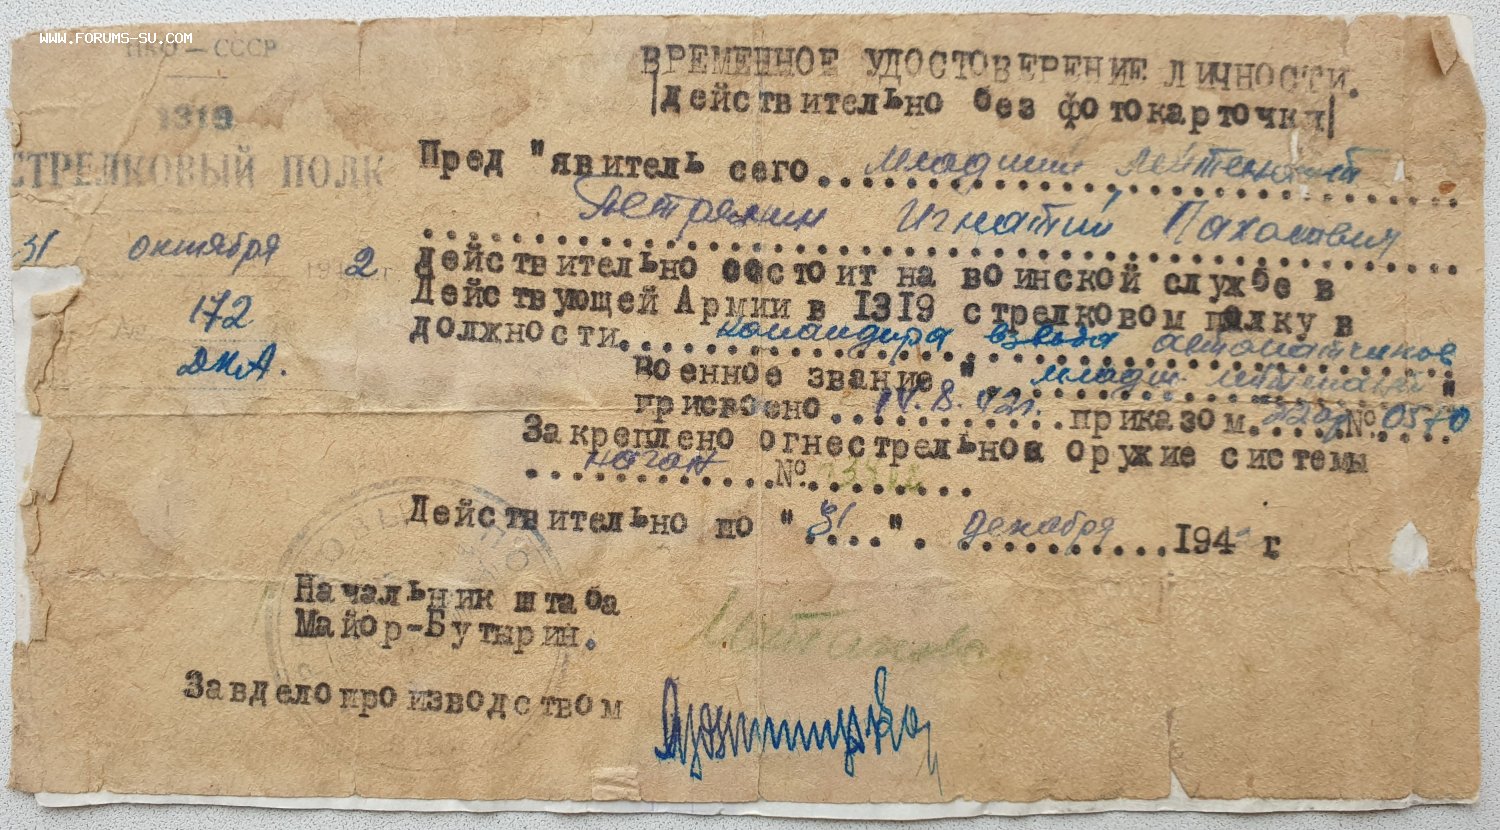 WWW.FORUMS-SU.COM
НКО — СССР
1319
СТРЕЛКОВЫЙ ПОЛК
31 октября 1942 г.
172
ДКА.
ВРЕМЕННОЕ УДОСТОВЕРЕНИЕ ЛИЧНОСТИ.
|действительно без фотокарточки|
Пред"явитель сего младший лейтенант
Игнатий Пахомович
действительно состоит на воинской службе в
Действующей Армии в 1319 стрелковом полку в
должности командира взвода автоматчиков
Военное звание "младш. лейтенант"
присвоено 14.8.42г. приказом № 0570
Закреплено огнестрельное оружие системы
наган №
Действительно по "31" декабря 194 г
Начальник штаба
Майор-Бутырин.
Завделопроизводством